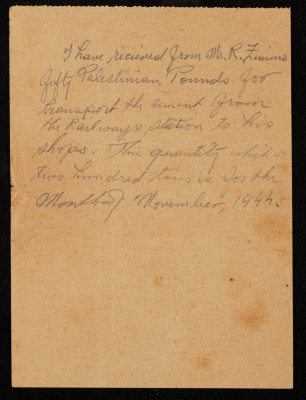 I have recieved from Mr. R.
fifty Palestinian Pounds for
transport the cement from
the Railways station to his
shops. This quantity which is
two hundred tons is for the
Month of November, 1944.